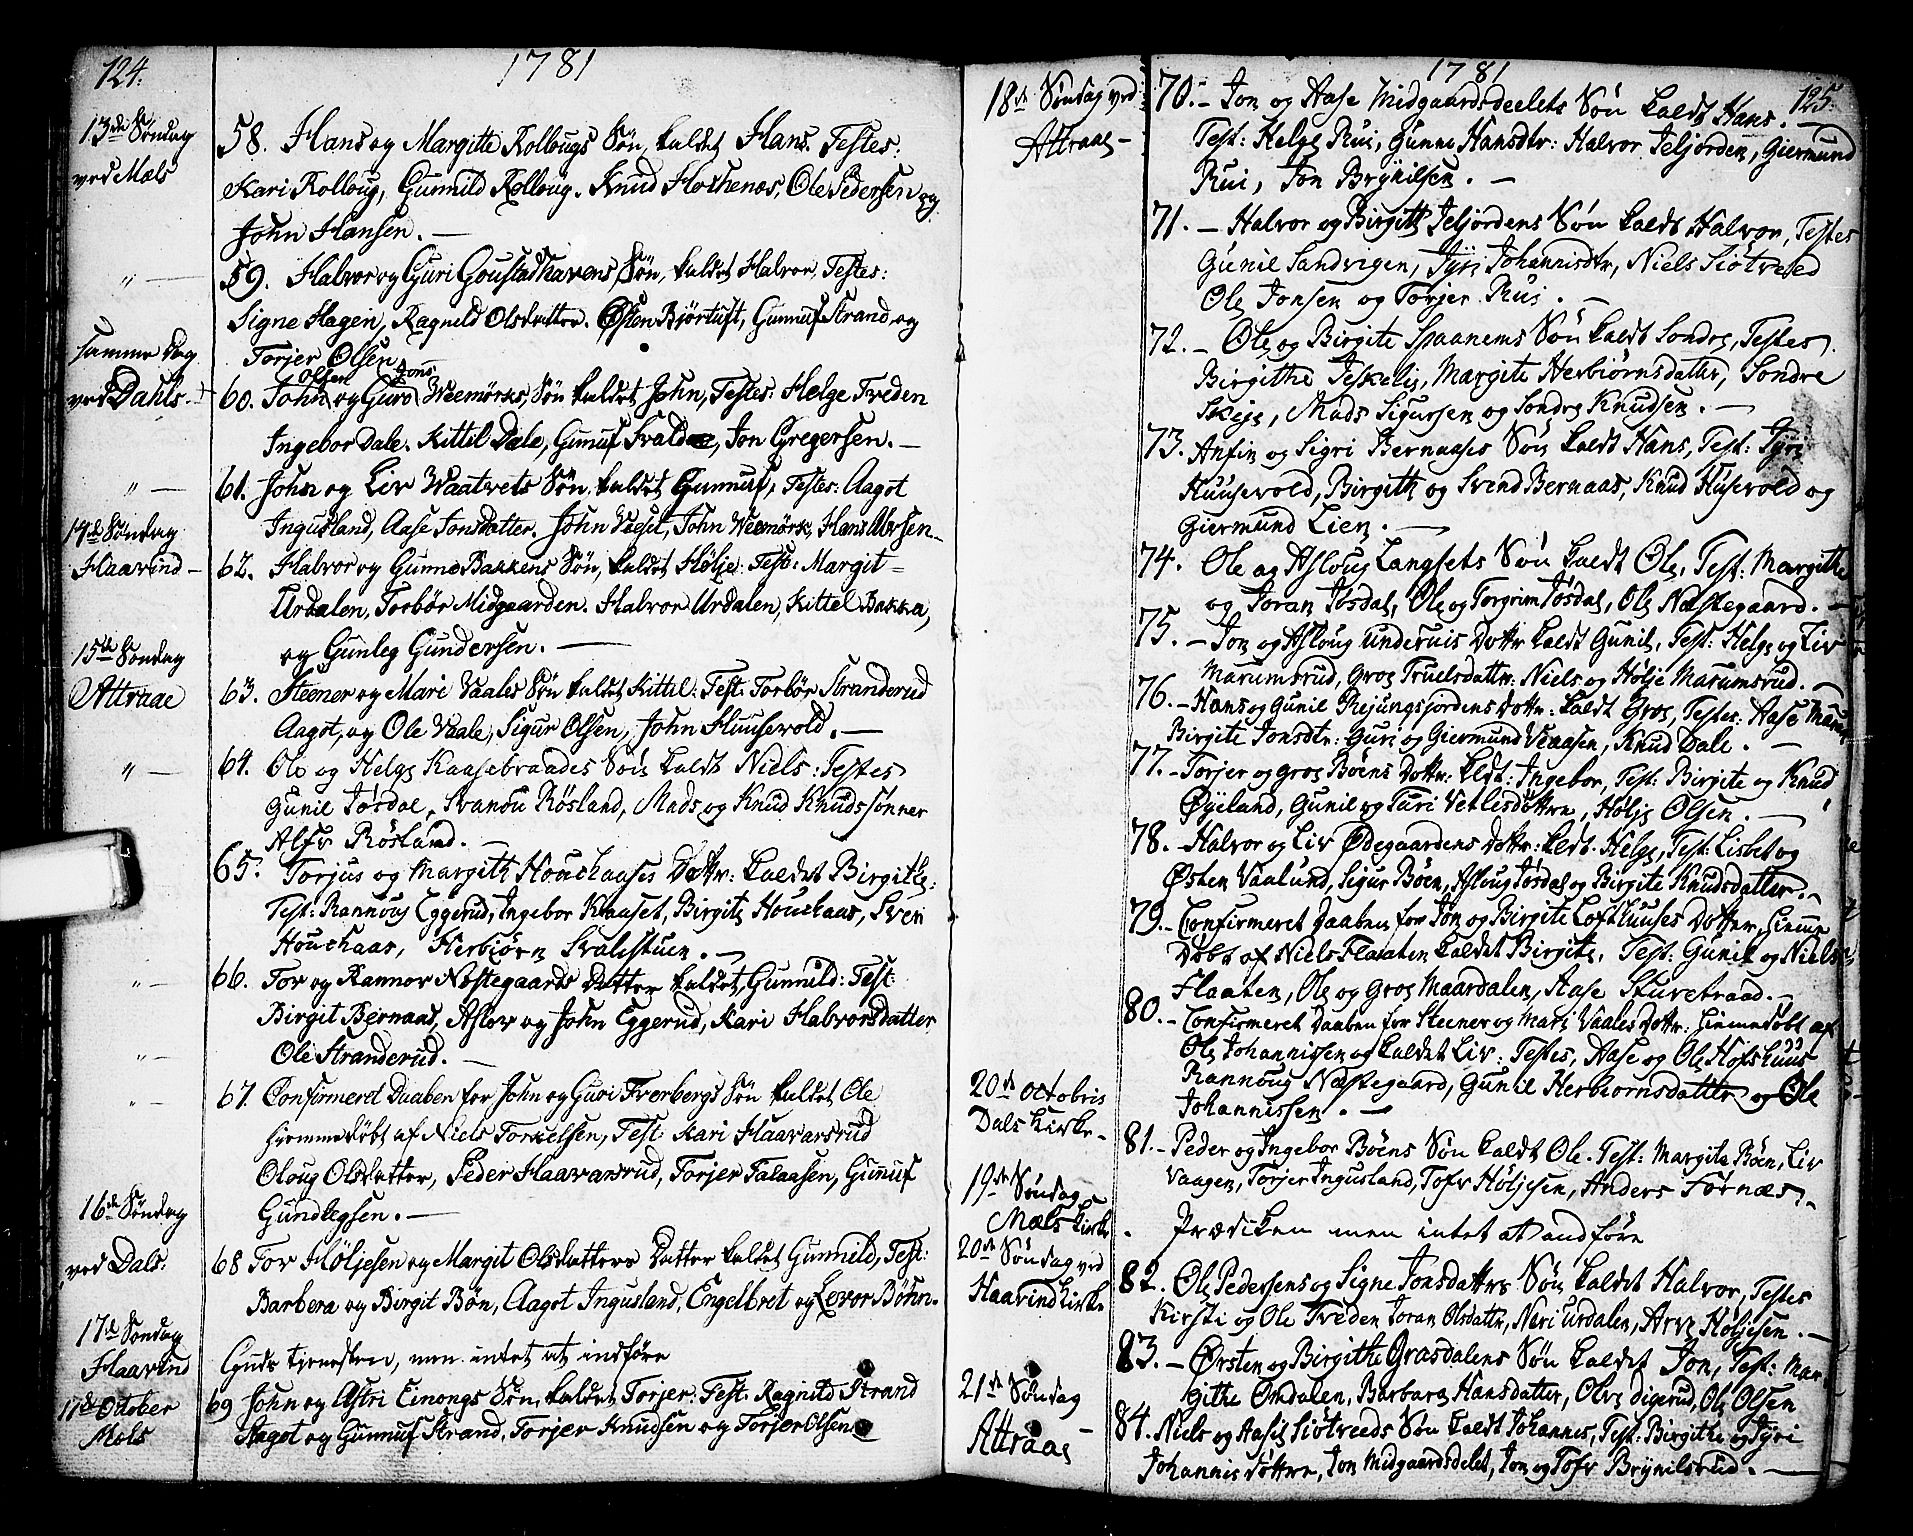 124.
1781
13de Søndag
ved Mæls
58. Hans og Margitte Rollougs Søn, kaldet Hans. Testes:
Kari Rolloug, Gunnild Rolloug. Knud Ole Pedersen og
John Hansen. —
" —
59. Halvor og Guri Søn, kaldet Halvor, Testes:
Signe Hagen, Ragnild Olsdatter. Østen Bjørtuft, Gunnuf Strand og
Torjer Olsen
samme Dag
ved Dahls. —
60. John Olsen og Guro Jons Weemørks, Søn kaldet John, Testes: Helge Treden
Ingebor Dale. Kittil Dale, Gunuf Jon Gregersen. —
" —
61. John og Liv Waatvets Søn kaldet Gunnuf, Testes: Aagot
Ingusland, Aase Jonsdatter. John John Weemørk, Hans
14de Søndag
Haavind —
62. Halvor og Gunne Bakkens Søn, kaldet Hølje: Test: Margit
Urdalen, Torbør Midgaarden. Halvor Urdalen, Kittel Bakka,
og Gunleg Gundersen. —
15de Søndag
Attraae
63. Steener og Mari Vaales Søn kaldet Kittel: Test: Torbør Stranderud
Aagot, og Ole Vaale, Sigur Olsen, John Huusevold. —
" —
64. Ole og Helge Kaasebraades Søn kaldt Niels: Testes
Gunil Jøsdal, Svanou Røsland, Mads og Knud Knudssønner
Alfv Røsland. —
65. Torjus og Margith Houchaases Dottr: kaldet Birgithe:
Test: Rannoug Eggerud, Ingebor Kaaset, Birgite Houchaas, Sven
Houchaas, Herbiørn Svalestuen. —
" —
66. Tor og Rannov Næstegaards Datter kaldet Gunnild: Test:
Birgit Bernaas, Aslov og John Eggerud, Kari Halvorsdatter,
Ole Stranderud. —
" —
" —
67. Confirmered Daaben for John og Guri Frerbergs Søn kaldet Ole
hjemmedøbt af Niels Torkelsen, Test: Kari Haavarsrud
Oloug Olsdatter, Peder Haavarsrud, Torjer Talaasen, Gunnuf
Gundlegsen. —
16de Søndag
ved Dals.
68 Tor Høljesen og Margit Olsdatters Datter kaldet Gunnild, Test:
Barbera og Birgit Bøn, Aagot Ingusland, Engelbret og Levor Bøhn.
17de Søndag
Haavind
Guds tjenesten, men intet at indføre
17de October
Mæls
69 John og Astri Einongs Søn, kaldet Torjer: Test: Ragnild Strand
Aagot og Gunnuf Strand, Torjer Knudsen og Torjer Olsen. —
1781
125.
18de Søndag ved
Attraae —
70. — Jon og Aase Midgaardsdeelets Søn kaldt Hans. —
Test: Helge Rui, Gunne Hansdtr: Halvor Jeljorden, Giermund
Rui, Jon Brynilsen. —
71. — Halvor og Birgith Jeljordens Søn kaldt Halvor, Testes
Gunil Sandvigen, Tyri Johannisdtr, Niels Siøtveed
Ole Jonsen og Torjer Rui. —
72. — Ole og Birgite Spaanems Søn kaldt Sondre, Testes
Birgithe Teskelie, Margite Herbiørnsdatter, Sondre
Skeie, Mads Sigursen og Sondre Knudsen. —
73. Anfin og Sigri Bernaases Søn kaldt Hans, Test: Tyri
Huusevold, Birgith og Svend Bernaas, Knud Husevold og
Giermund Lien. —
74. Ole og Asloug Langsets Søn kaldt Ole, Test: Margithe
og Joran Jøsdal, Ole og Torgrim Jøsdal, Ole Næstegaard. —
75. — Jon og Asloug Dottr kaldt Gunil. Test: Helge og Liv
Marumsrud, Groe Truelsdattr: Niels og Hølje Marumsrud. —
76. — Hans og Gunil Rejungsjordens Dottr: kaldt Groe, Testes: Aase
Birgite Jonsdtr: Guri og Giermund Veaasen, Knud Dale. —
77. — Torjer og Groe Bøens Dottr: kldt: Ingebor, Test: Birgite og Knud
Øyeland, Gunil og Turi Vetlesdøttre, Hølje Olsen. —
78. — Halvor og Liv Ødegaardens Dottr: kldt. Helge, Test: Lisbet og
Østen Vaalund, Sigur Bøen, Asloug Jøsdal og Birgite Knudsdatter. —
79. — Confirmeret Daaben for Jon og Birgite Lofthuuses Dotter, hieme
Døbt af Niels Flaaten kaldet Birgite, Test: Gunil og Niels
Flaaten, Ole og Groe Maardalen, Aase Sturetraad. —
80. — Confirmeret Daaben for Steener og Mari Vaales Dottr: hiemedøbt af
Ole Johannissen og kaldet Liv: Testes, Aase og Ole Hofshuus
Rannoug Næstegaard, Gunil Herbiornsdatter og Ole
Johannissen. —
20de Octobris
Dals kirke —
81. — Peder og Ingebor Bøens Søn kaldt Ole. Test: Margita Bøen, Liv
Vaagen, Torjer Ingusland, Tofv Høljesen, Anders Fornæs. —
19de Søndag
Mæls kirke
Prædiken men intet at andføre
20de Søndag ved
Haavind kirke
82. Ole Pedersens og Signe Jonsdattrs Søn kaldet Halvor, Testes
Kirsti og Ole Treden Joran Olsdattr, Neri Urdalen, Arve Høljesen. —
83. — Ørsten og Birgithe Grasdalens Søn kaldet Jon, Test: Mar
githe Omdalen, Barbara Hansdatter, Olve digerud, Ole Olsen
21de Søndag
Attraae —
84. Niels og Aase Siøtveeds Søn kaldt Johannes, Test: Birgithe og Tyri
Johannis døttre, Jon Midgaardsdelet, Jon og Tofv Brynilsrud. —